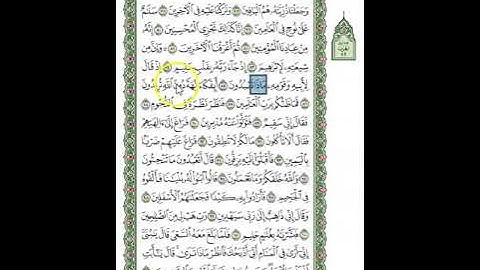 وَجَعَلْنَا ذُرِّيَّتَهُۥ هُمُ ٱلْبَاقِينَ ۝ وَتَرَكْنَا عَلَيْهِ فِى ٱلْءَاخِرِينَ ۝ سَلَٰمٌ
عَلَىٰ نُوحٍ فِى ٱلْعَٰلَمِينَ ۝ إِنَّا كَذَٰلِكَ نَجْزِى ٱلْمُحْسِنِينَ ۝ إِنَّهُۥ
مِنْ عِبَادِنَا ٱلْمُؤْمِنِينَ ۝ ثُمَّ أَغْرَقْنَا ٱلْءَاخَرِينَ ۝ وَإِنَّ مِن
شِيعَتِهِۦ لَإِبْرَٰهِيمَ ۝ إِذْ جَآءَ رَبَّهُۥ بِقَلْبٍ سَلِيمٍ ۝ إِذْ قَالَ
لِأَبِيهِ وَقَوْمِهِۦ مَاذَا تَعْبُدُونَ ۝ أَئِفْكًا ءَالِهَةً دُونَ ٱللَّهِ تُرِيدُونَ
۝ فَمَا ظَنُّكُم بِرَبِّ ٱلْعَٰلَمِينَ ۝ فَنَظَرَ نَظْرَةً فِى ٱلنُّجُومِ
۝ فَقَالَ إِنِّى سَقِيمٌ ۝ فَتَوَلَّوْا۟ عَنْهُ مُدْبِرِينَ ۝ فَرَاغَ إِلَىٰٓ ءَالِهَتِهِمْ
فَقَالَ أَلَا تَأْكُلُونَ ۝ مَا لَكُمْ لَا تَنطِقُونَ ۝ فَرَاغَ عَلَيْهِمْ ضَرْبًۢا
بِٱلْيَمِينِ ۝ فَأَقْبَلُوٓا۟ إِلَيْهِ يَزِفُّونَ ۝ قَالَ أَتَعْبُدُونَ مَا تَنْحِتُونَ
۝ وَٱللَّهُ خَلَقَكُمْ وَمَا تَعْمَلُونَ ۝ قَالُوا۟ ٱبْنُوا۟ لَهُۥ بُنْيَٰنًا فَأَلْقُوهُ
فِى ٱلْجَحِيمِ ۝ فَأَرَادُوا۟ بِهِۦ كَيْدًا فَجَعَلْنَٰهُمُ ٱلْأَسْفَلِينَ ۝
وَقَالَ إِنِّى ذَاهِبٌ إِلَىٰ رَبِّى سَيَهْدِينِ ۝ رَبِّ هَبْ لِى مِنَ ٱلصَّٰلِحِينَ
۝ فَبَشَّرْنَٰهُ بِغُلَٰمٍ حَلِيمٍ ۝ فَلَمَّا بَلَغَ مَعَهُ ٱلسَّعْىَ قَالَ يَٰبُنَىَّ
إِنِّىٓ أَرَىٰ فِى ٱلْمَنَامِ أَنِّىٓ أَذْبَحُكَ فَٱنظُرْ مَاذَا تَرَىٰ قَالَ يَٰٓأَبَتِ